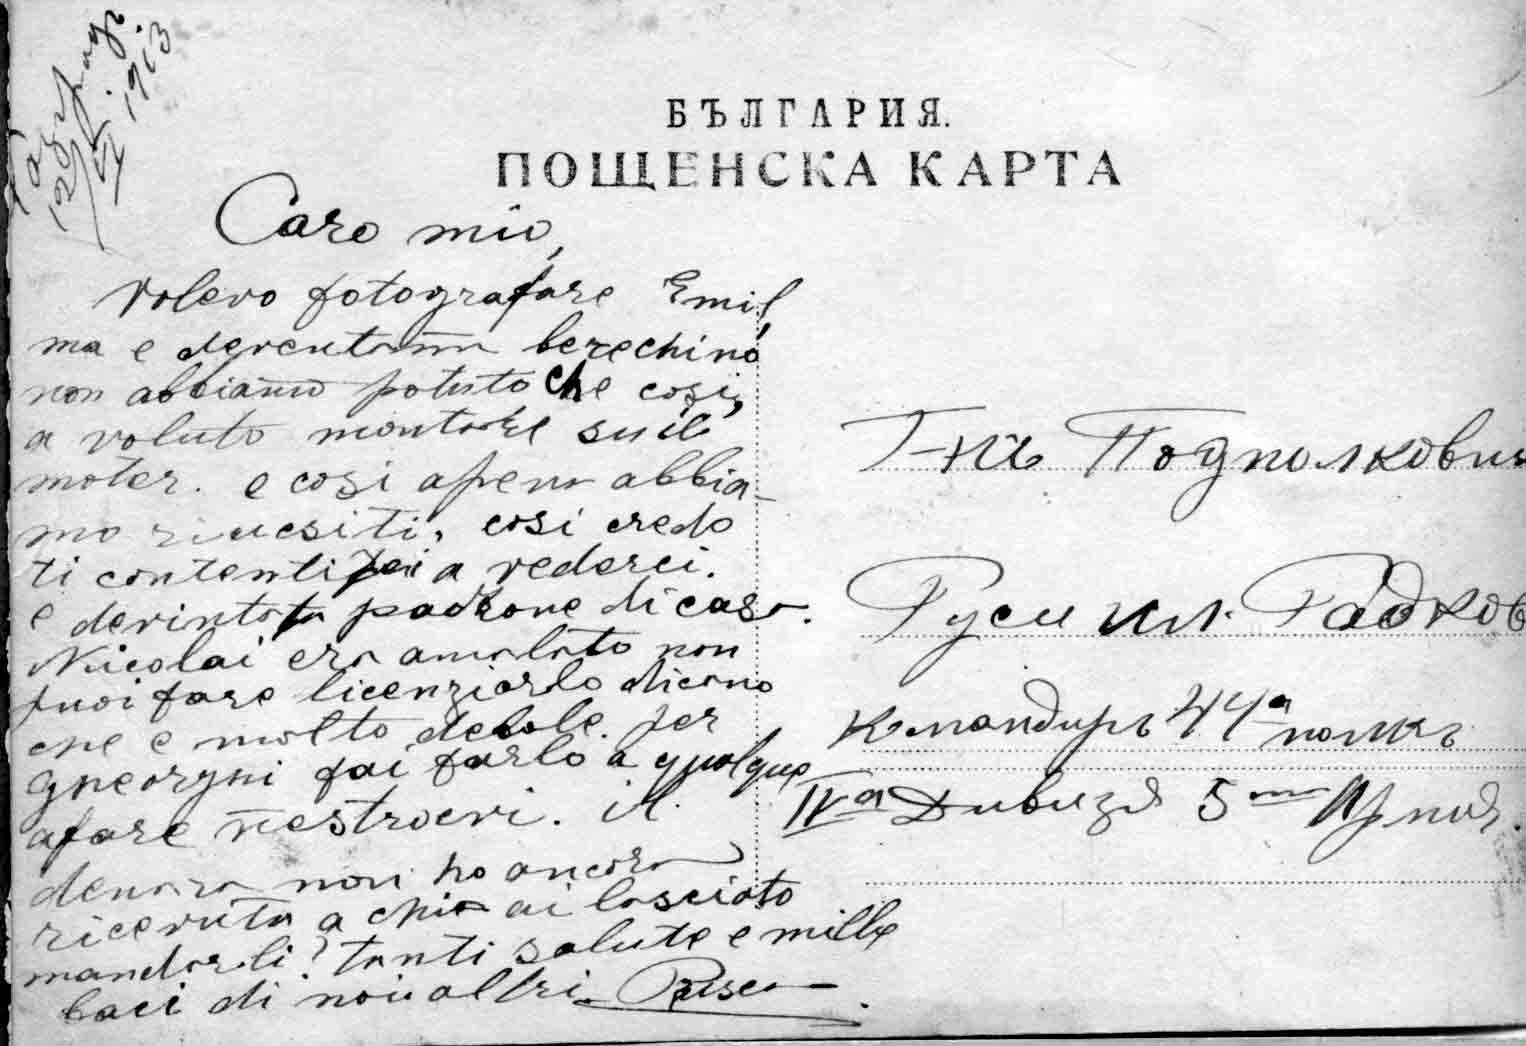 12/VI 1913
БЪЛГАРИЯ.
ПОЩЕНСКА КАРТА
Caro mio,
volevo fotografare Emil,
ma e deventata berechino
non abbiamo potuto che cosi,
a voluto montare su il
moter. e cosi apena abbia-
mo riuesiti, cosi credo
ti contenti a vederci.
e devintata padrone di casa.
Nicolai era amalato non
puoi fare licenziarlo dicono
che e molto debole. per
Gheorghi fai farlo a qualque
afare nestroevi. il
denaro non ho ancora
ricevuta a chi ai lasciato
mandarli? tanti salute e mille
baci di noi altri
Г-нъ Подполковникъ
Руси Ил. Радковъ
Командиръ 44а полкъ
IVа Дивизя 5та Армия.